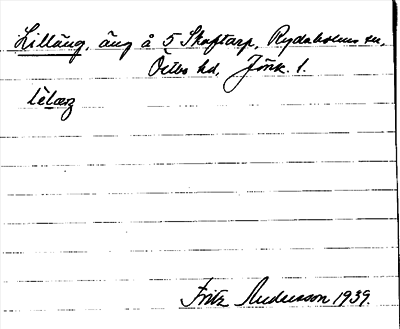 Lilläng, äng å 5 Skaftarp, Rydaholms sn,
Östbo hd, Jönk. l.
Fritz Andersson 1939.